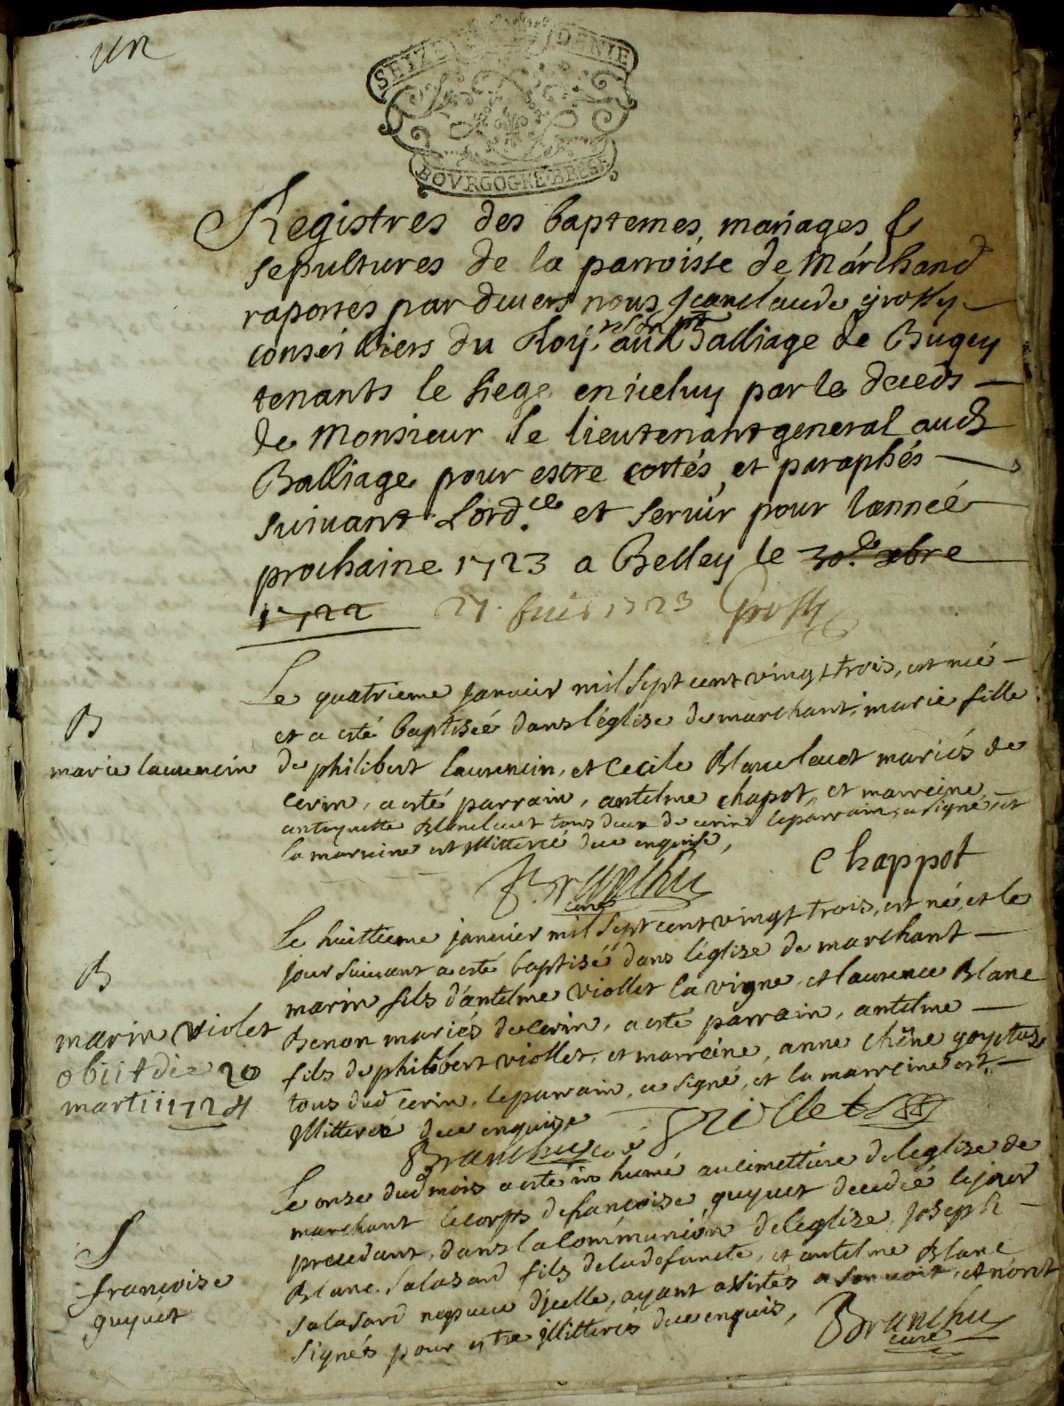 un
SEIZE DENIE
BOVRGOGNE BRESSE
Registres des baptemes, mariages &
sepultures de la parroisse de Marchand
raportes par devers nous Jean claude grosly
conseilliers du Roy au Balliage de Bugey
tenants le siege en iceluy par le deceds
de Monsieur le lieutenant general aud
Balliage pour estre cottés et paraphés
suivant Lord.ce et servir pour lanneé
prochaine 1723 a Belley le 30.e xbre
1722 27. 1723
Le quatrieme janvier mil sept cent vingt trois, est neé
et a esté baptiseé dans l'églize de marchant, marie fille
B
marie laurencin
de philibert laurencin, et Cecile Blanc mariés de
cerin, a esté parrain, antelme chapot, et marreine
antoynette tous deux de cerin le parrain a signé et
la marreine est illitereé de ce enquise,
Chappot
Branchu
curé
Le huittieme janvier mil sept cent vingt trois, est né, et le
jour suivant a esté baptisé dans l'églize de marchant
B
marin fils d'antelme viollet la vigne, et laurence Blanc
marin violet
Benon mariés de Cerin, a esté parrain, antelme
obiit die 20
fils de philibert viollet, et marreine, anne chêne
martii 1724
tous dud cerin, le parrain, a signé, et la marreine est
illitereé de ce enquise
Branchu curé Viollet
Le onze dud mois a esté in humé au cimettiere de leglize de
marchant le corps de françoise guyuet decedeé le jour
S
precedant, dans la communion de leglize, joseph
françoise
Blanc salasard fils de la defuncte, et antelme Blanc
guyuet
salasard nepveu d'jcelle, ayant assistés a son et n'ont
signés pour estre illiterés de ce enquis,
Branchu
curé